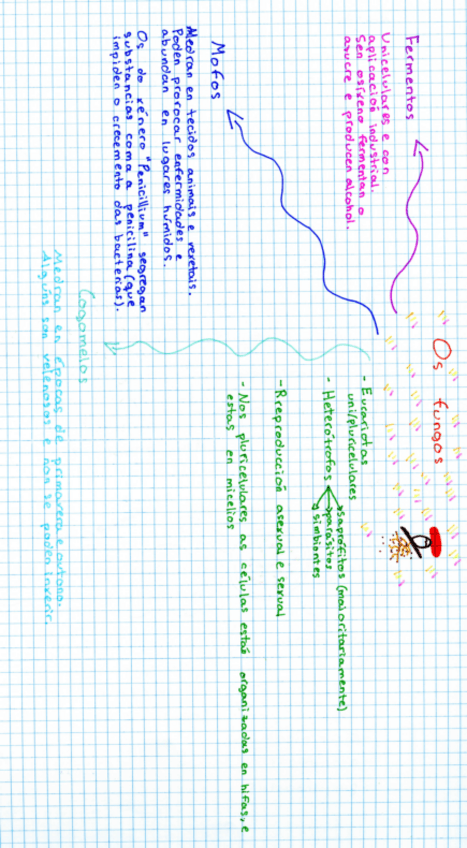 Os fungos
- Eucariotas
uni/pluricelulares
- Heterótrofos
saprófitos (maioritariamente)
parásitos
simbiontes
- Rreproducción asexual e sexual
- Nos pluricelulares as células están organizadas en hifas, e
estas en micelios
Fermentos
Unicelulares e con
aplicación industrial.
Sen osíxeno fermentan o
azucre e producen alcohol.
Mofos
Medran en tecidos animais e vexetais.
Poden provocar enfermidades e
abundan en lugares húmidos.
Os do xénero "Penicillium" segregan
substancias coma a penicilina (que
impiden o crecemento das bacterias).
Cogomelos
Medran en épocas de primavera e outono.
Algúns son velenosos e non se poden inxerir.